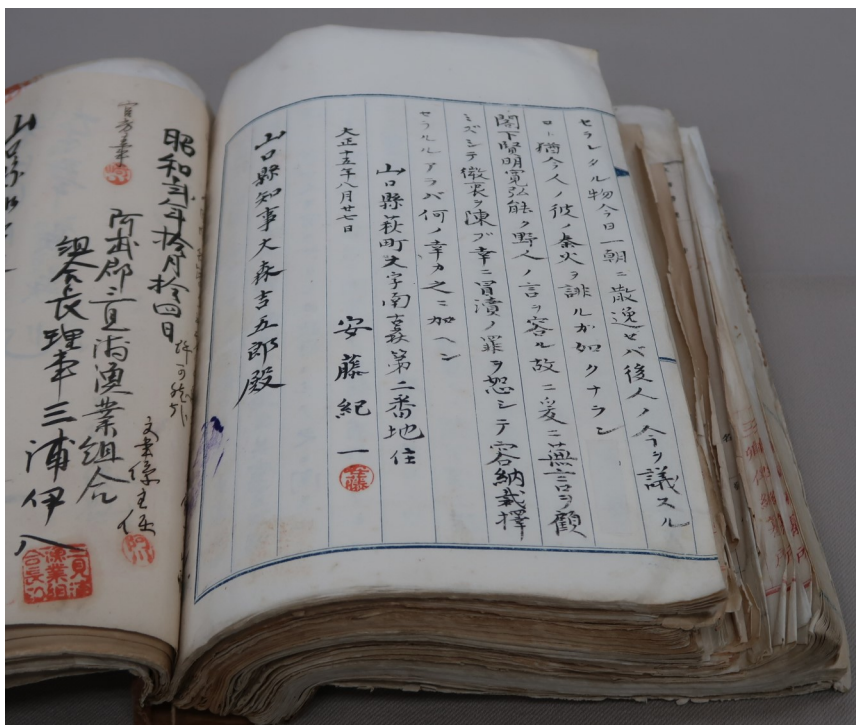 セラレタル物今日一朝ニ散逸セバ後人ノ今ヲ議スル
ロト猶今人ノ彼ノ秦火ヲ誹ルガ如クナラン
閣下賢明寛弘能ク野人ノ言ヲ容ル故ニ爰ニ蕪言ヲ顧
ミズシテ微衷ヲ陳ブ幸ニ冒瀆ノ罪ヲ恕シテ容納裁擇
セラルルアラバ何ノ幸カ之ニ加ヘン
山口縣萩町大字南古萩第二番地住
大正十五年八月廿七日
安藤紀一
山口縣知事大森吉五郎殿
昭和弐年拾月拾四日
阿武郡三見浦漁業組合
組合長理事三浦伊八